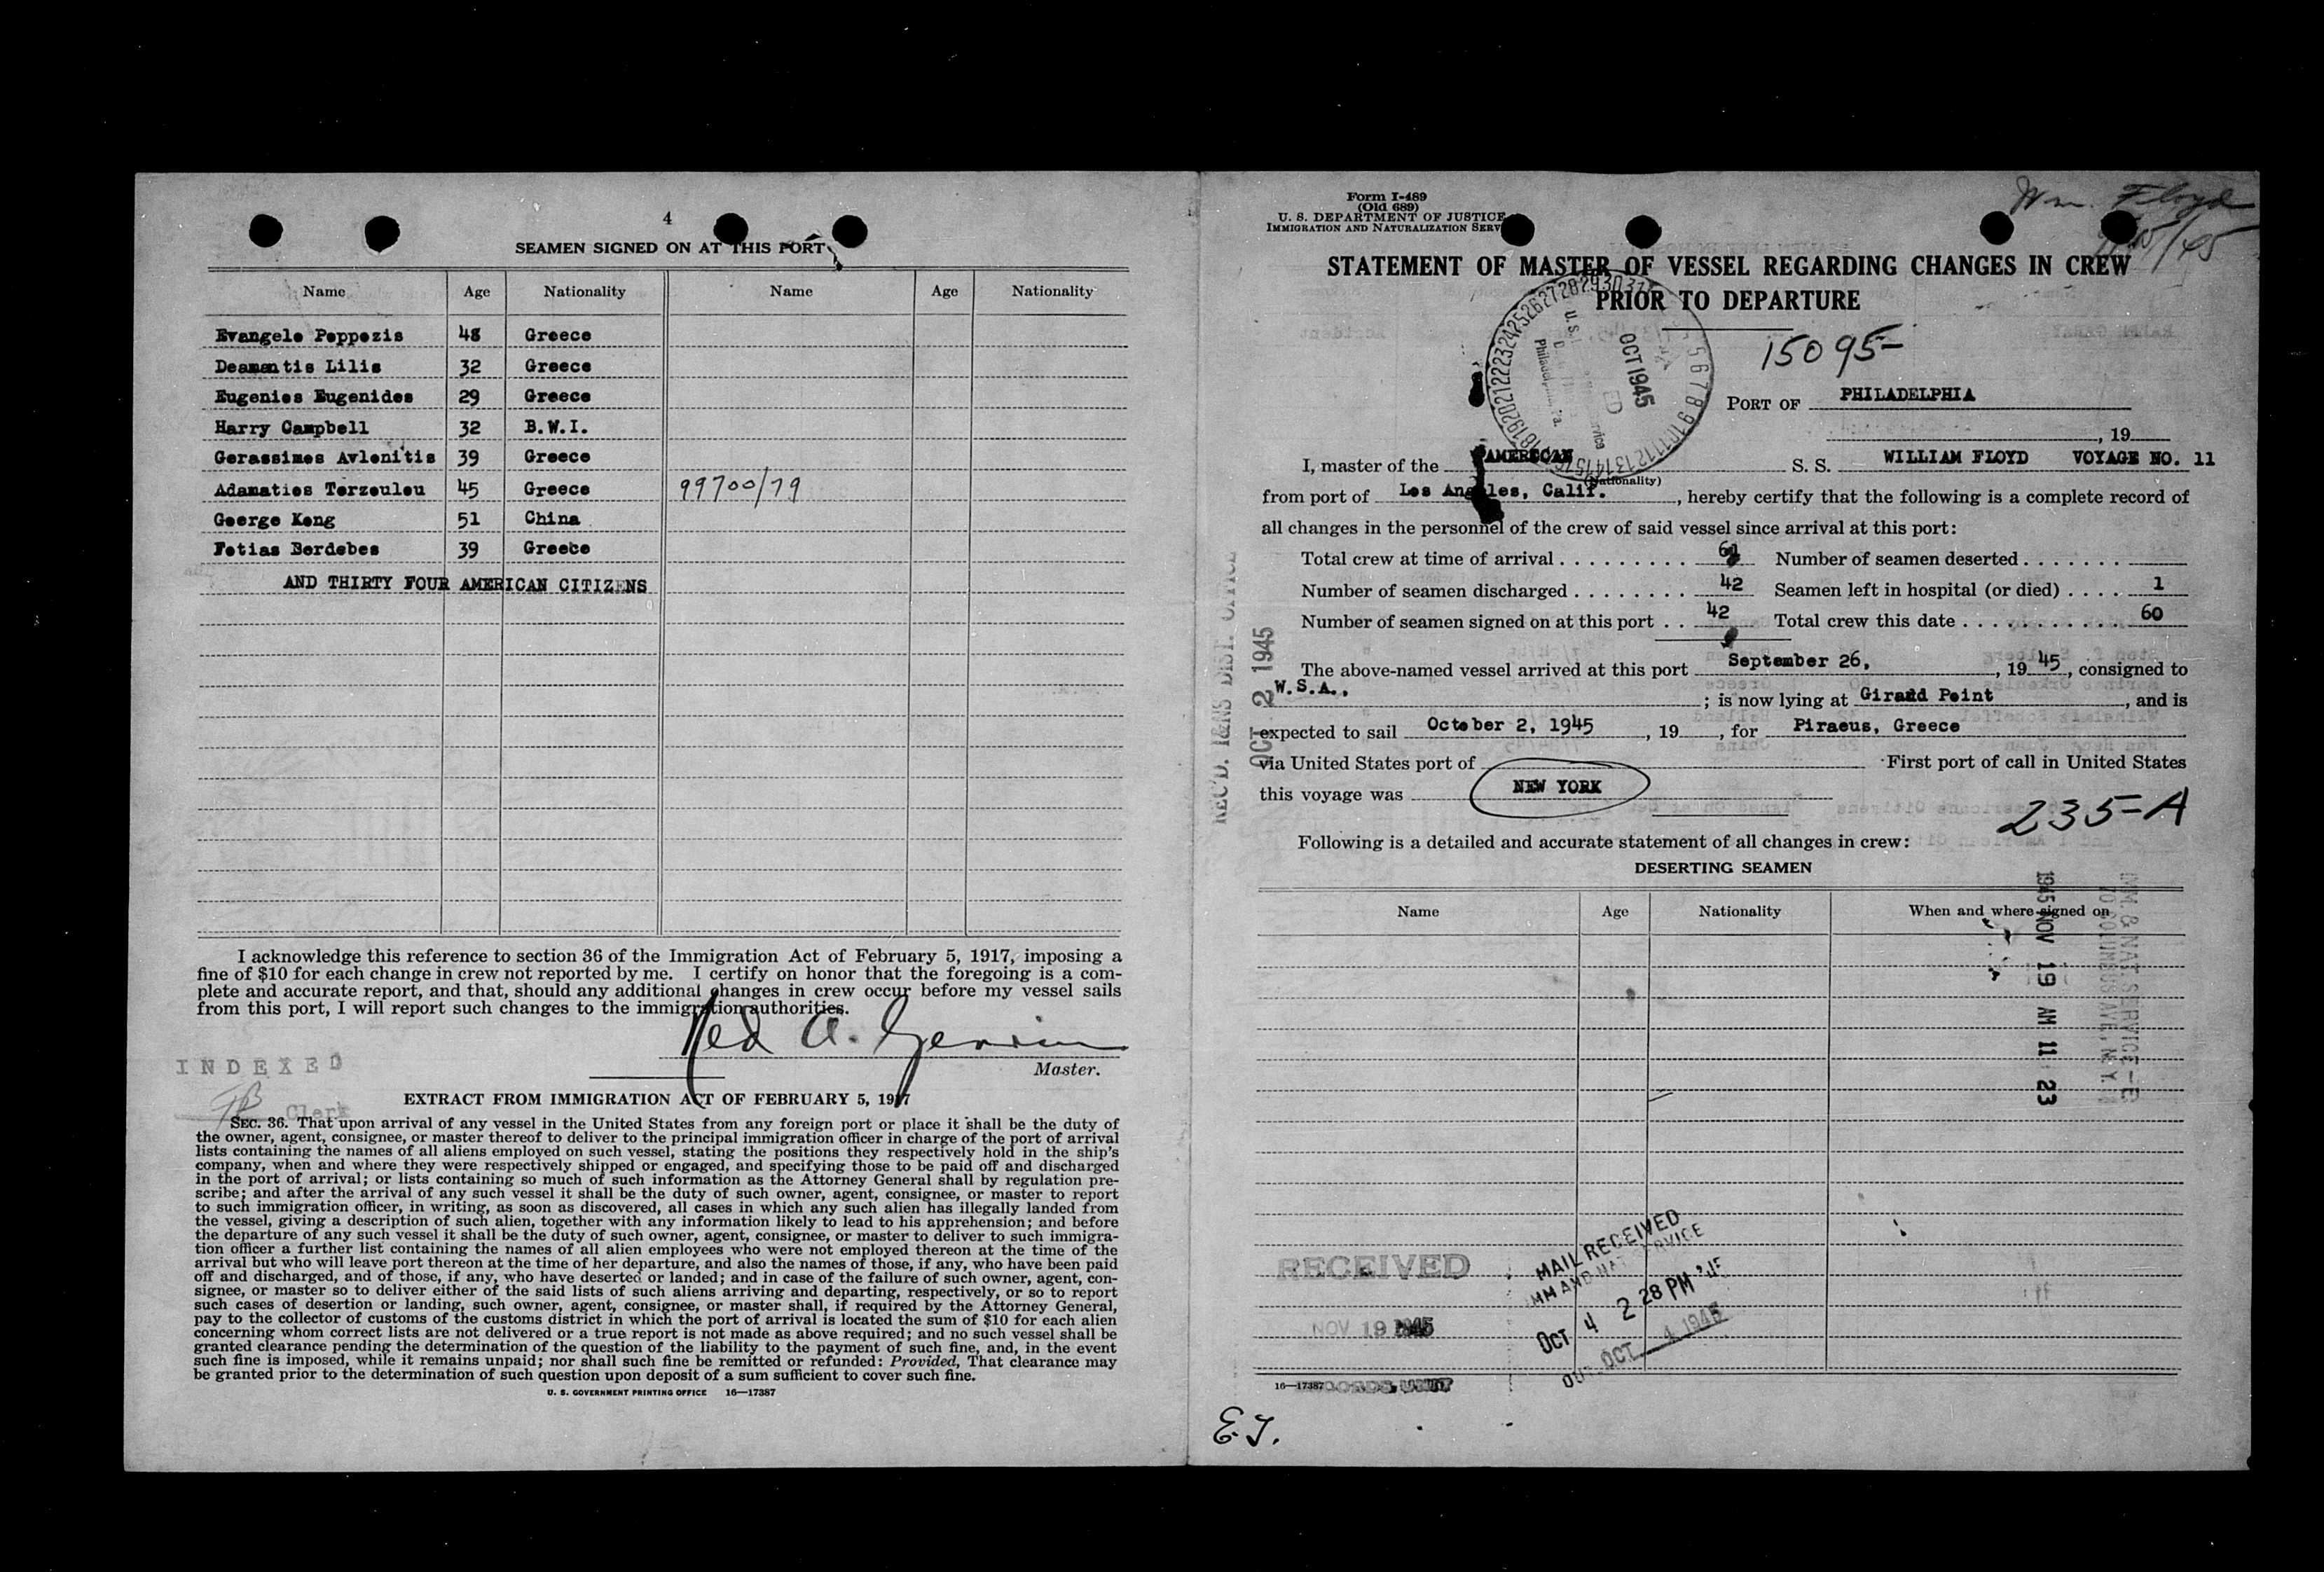 4
SEAMEN SIGNED ON AT THIS PORT
Name Age Nationality Name Age Nationality
Evangelo Peppezis 48 Greece
Deamantis Lilis 32 Greece
Eugenios Eugenides 29 Greece
Harry Campbell 32 B.W.I.
Gerassimos Avlonitis 39 Greece
Adamatios Terzoulou 45 Greece 99700/79
George Kong 51 China
Fotias Berdebes 39 Greece
AND THIRTY FOUR AMERICAN CITIZENS
I acknowledge this reference to section 36 of the Immigration Act of February 5, 1917, imposing a
fine of $10 for each change in crew not reported by me. I certify on honor that the foregoing is a com-
plete and accurate report, and that, should any additional changes in crew occur before my vessel sails
from this port, I will report such changes to the immigration authorities.
Ned A.
Master.
INDEXED
Clerk
EXTRACT FROM IMMIGRATION ACT OF FEBRUARY 5, 1917
SEC. 36. That upon arrival of any vessel in the United States from any foreign port or place it shall be the duty of
the owner, agent, consignee, or master thereof to deliver to the principal immigration officer in charge of the port of arrival
lists containing the names of all aliens employed on such vessel, stating the positions they respectively hold in the ship's
company, when and where they were respectively shipped or engaged, and specifying those to be paid off and discharged
in the port of arrival; or lists containing so much of such information as the Attorney General shall by regulation pre-
scribe; and after the arrival of any such vessel it shall be the duty of such owner, agent, consignee, or master to report
to such immigration officer, in writing, as soon as discovered, all cases in which any such alien has illegally landed from
the vessel, giving a description of such alien, together with any information likely to lead to his apprehension; and before
the departure of any such vessel it shall be the duty of such owner, agent, consignee, or master to deliver to such immigra-
tion officer a further list containing the names of all alien employees who were not employed thereon at the time of the
arrival but who will leave port thereon at the time of her departure, and also the names of those, if any, who have been paid
off and discharged, and of those, if any, who have deserted or landed; and in case of the failure of such owner, agent, con-
signee, or master so to deliver either of the said lists of such aliens arriving and departing, respectively, or so to report
such cases of desertion or landing, such owner, agent, consignee, or master shall, if required by the Attorney General,
pay to the collector of customs of the customs district in which the port of arrival is located the sum of $10 for each alien
concerning whom correct lists are not delivered or a true report is not made as above required; and no such vessel shall be
granted clearance pending the determination of the question of the liability to the payment of such fine, and, in the event
such fine is imposed, while it remains unpaid; nor shall such fine be remitted or refunded: Provided, That clearance may
be granted prior to the determination of such question upon deposit of a sum sufficient to cover such fine.
U. S. GOVERNMENT PRINTING OFFICE 16—17387
Form I-489
(Old 689)
U. S. DEPARTMENT OF JUSTICE
IMMIGRATION AND NATURALIZATION SERV
Wm. Floyd
STATEMENT OF MASTER OF VESSEL REGARDING CHANGES IN CREW
PRIOR TO DEPARTURE
OCT 1945
15095-
PORT OF PHILADELPHIA
, 19
I, master of the AMERICAN S. S. WILLIAM FLOYD VOYAGE NO. 11
(Nationality)
from port of Los Angeles, Calif. , hereby certify that the following is a complete record of
all changes in the personnel of the crew of said vessel since arrival at this port:
Total crew at time of arrival 61 Number of seamen deserted
Number of seamen discharged 42 Seamen left in hospital (or died) 1
Number of seamen signed on at this port 42 Total crew this date 60
The above-named vessel arrived at this port September 26, , 19 45, consigned to
W.S.A., ; is now lying at Girard Point , and is
expected to sail October 2, 1945 , 19 , for Piraeus, Greece
via United States port of First port of call in United States
this voyage was NEW YORK
235-A
Following is a detailed and accurate statement of all changes in crew:
DESERTING SEAMEN
Name Age Nationality When and where signed on
REC'D. I&NS DIST. OFFICE
OCT 2 1945
1945 NOV 19 AM 11 23
IMM. & NAT. SERVICE
70 COLUMBUS AVE., N.Y.
RECEIVED
NOV 19 1945
MAIL RECEIVED
OCT 4 2 28 PM
OCT 4 1945
16—17387
E.J.